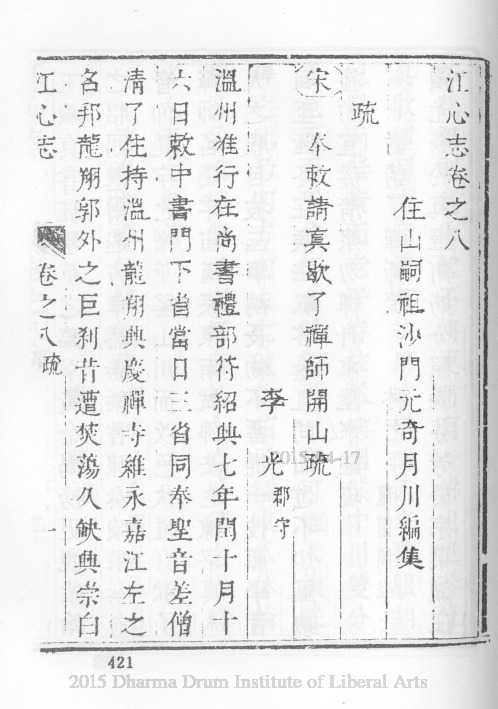 江心志卷之八
住山嗣祖沙門元奇月川編集
疏
宋 奉敕請真歇了禪師開山疏
李 光郡守
溫州准行在尚書禮部符紹興七年閏十月十
六日敕中書門下省當日三省同奉聖音差僧
清了住持溫州龍翔興慶禪寺維永嘉江左之
名邦龍翔郭外之巨刹昔遭焚蕩久缺興崇白
江心志
卷之八疏
一
2015-04-17
421
2015 Dharma Drum Institute of Liberal Arts